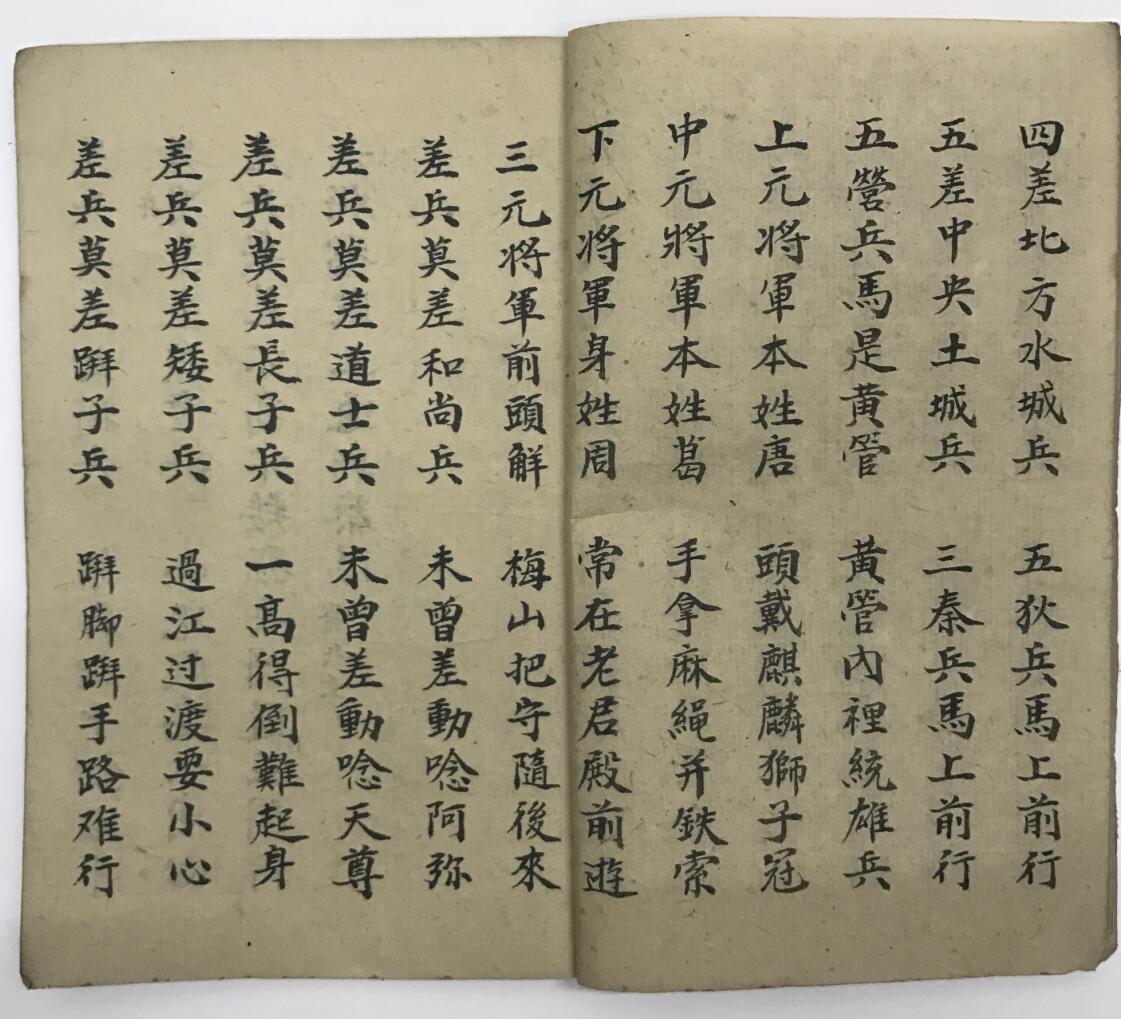 四差北方水城兵 五狄兵馬上前行
五差中央土城兵 三秦兵馬上前行
五營兵馬是黄管 黄管內裡統雄兵
上元将軍本姓唐 頭戴麒麟獅子冠
中元將軍本姓葛 手拿麻繩并鉄索
下元将軍身姓周 常在老君殿前遊
三元将軍前頭觧 梅山把守隨後來
差兵莫差和尚兵 未曾差動唸阿弥
差兵莫差道士兵 未曾差動唸天尊
差兵莫差長子兵 一高得倒難起身
差兵莫差矮子兵 過江过渡要小心
差兵莫差跰子兵 跰脚跰手路难行